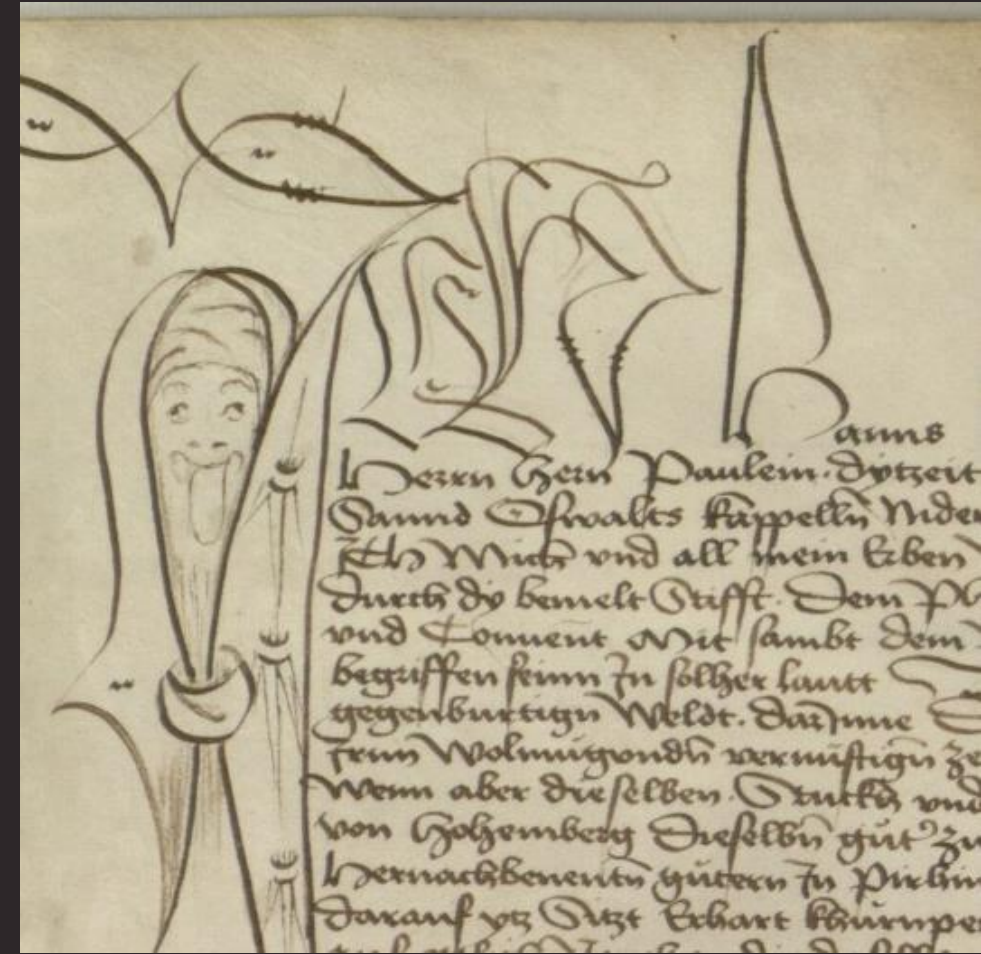 Ich Hanns
Herrn Hern Paulein. dytzeit
Sannd Oswalts kappelln Nide
Ich Mich vnd all mein Erben
durch dy bemelt Stifft. Dem
vnd Conuent Mit sambt dem
begriffen seinn In solher lautt
gegenburtign Weldt. darInne
vernufftign
Wenn aber dieselben. Stuckh vnd
von Hohemberg Dieselbn gut zu
Hernachbenentn gutern In
darauf ytz Sitzt Erhart